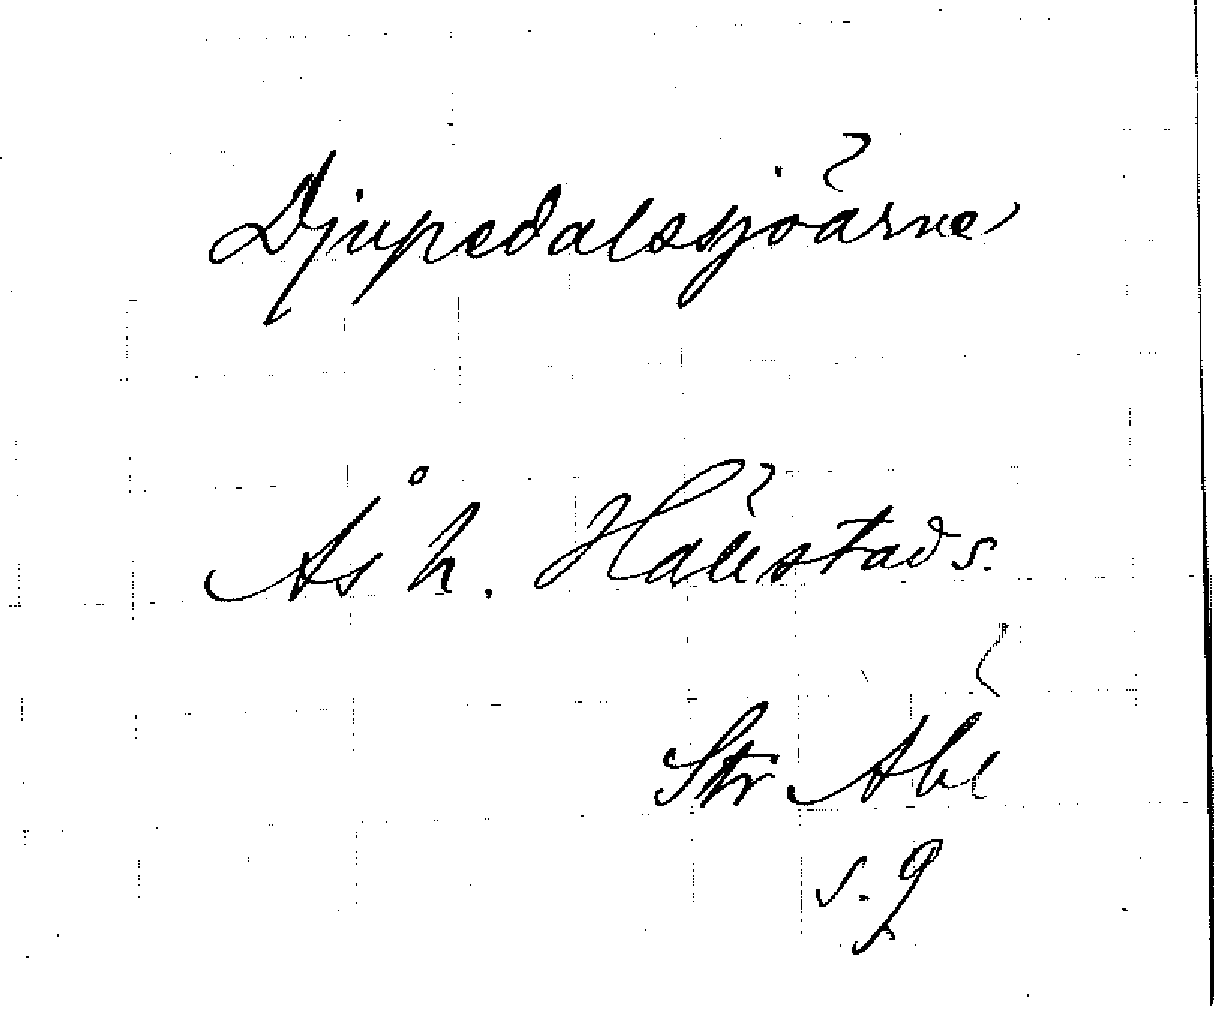 Djupedalssjöarne
Ås h. Hällestads s.
Str Abi
s. 9